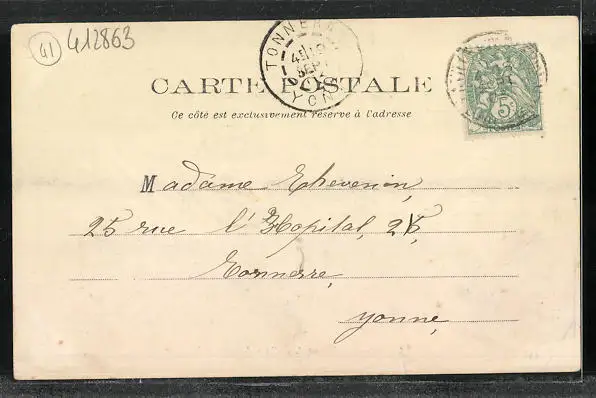 41
412863
TONNERRE
SEPT
YONNE
CARTE POSTALE
Ce côté est exclusivement réservé à l'adresse
5c
Madame Chevenion,
25 rue l'Hopital, 25,
Tonnerre,
Yonne,